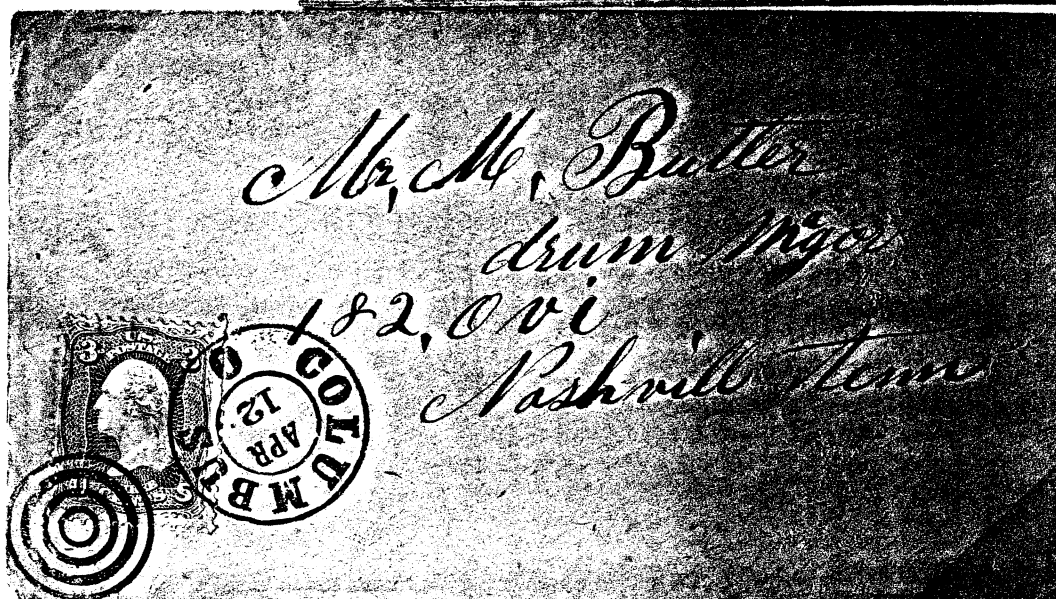 Mr, M, Butler
drum Mgor
182, Ovi
Nashvill Tenn
COLUMBUS O
APR
12
3 3